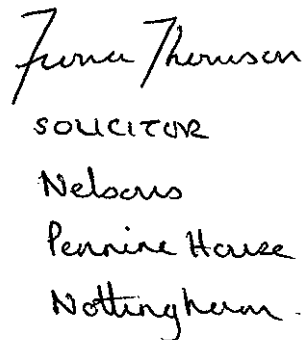 Fiona Thomson
SOLICITOR
Nelsons
Pennine House
Nottingham.